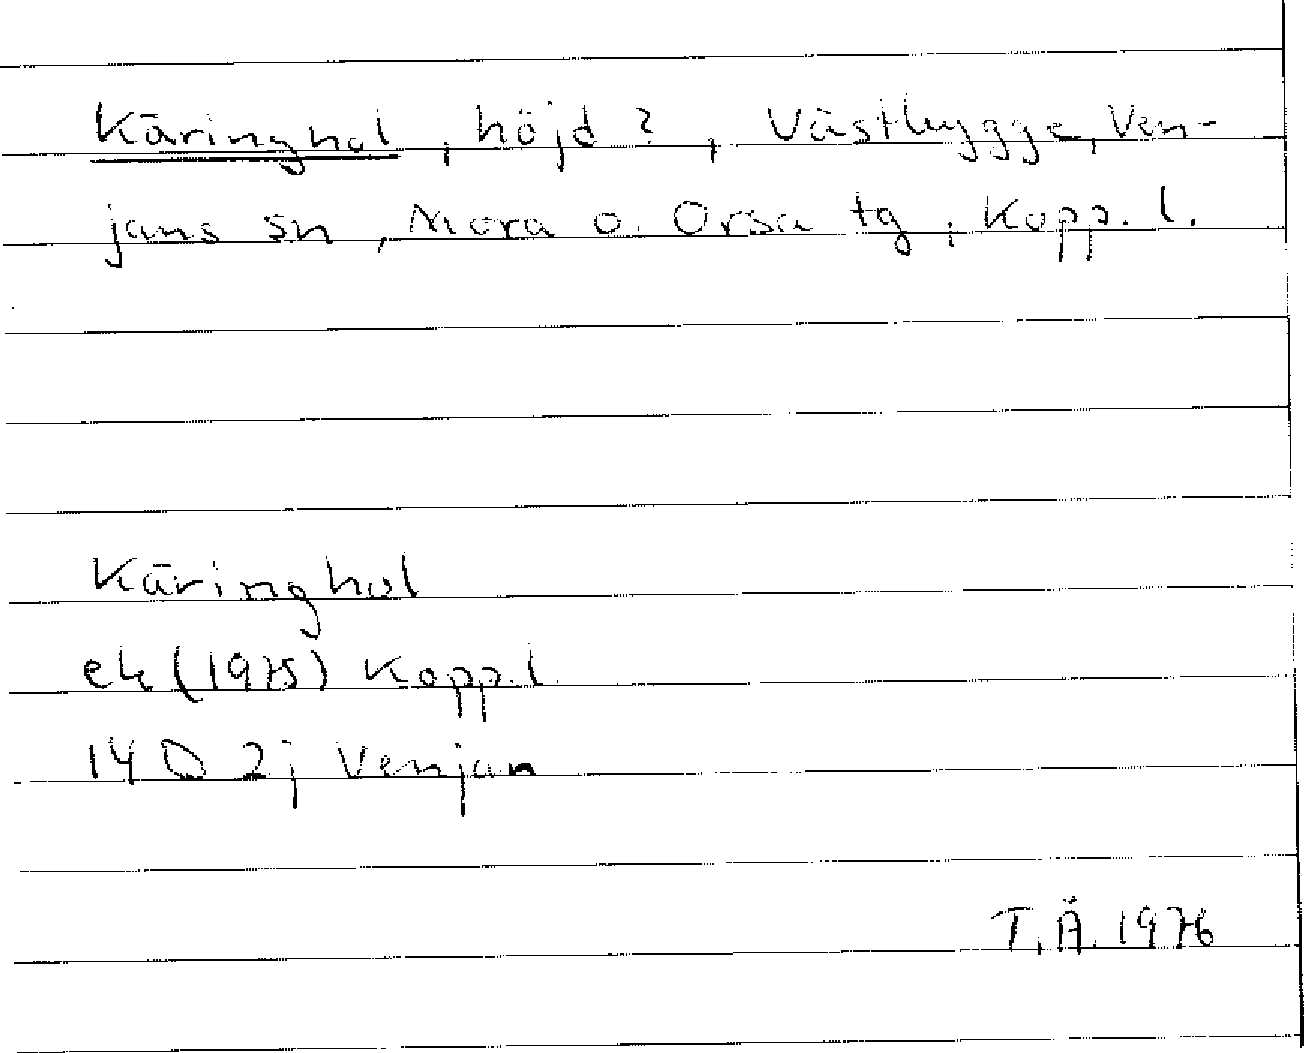 Käringhol, höjd?, Västbygge, Ven-
jans sn, Mora o. Orsa tg, Kopp. l.
Käringhol
ek (1975) Kopp. l
14 D 2j Venjan
T. Ä. 1976